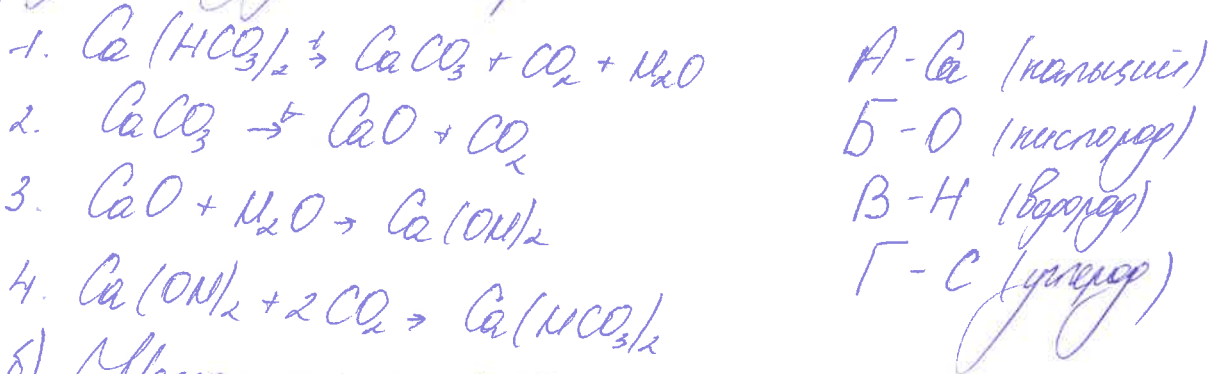 1. Ca(HCO₃)₂ →ᵗ CaCO₃ + CO₂ + H₂O
2. CaCO₃ →ᵗ CaO + CO₂
3. CaO + H₂O → Ca(OH)₂
4. Ca(OH)₂ + 2CO₂ → Ca(HCO₃)₂
б)
А - Ca (кальций)
Б - О (кислород)
В - Н (водород)
Г - С (углерод)